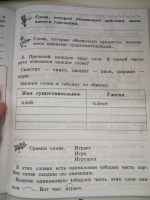 Слова, которые обозначают действия, называются глаголами.
Слова, которые обозначают предметы, называются именами существительными.
5. Прочитай каждую пару слов. К какой части речи относится каждое слово?
Свистит — свист,
Запиши слова в таблицу по образцу.
Имя существительное Глагол
клей клеит
Сравни слова: Играет
Игра
Игрушка
В этих словах есть одинаковая (общая) часть
слова сходны по значению.
Выдели одинаковую (общую) часть этих слов
Вот так: играет.